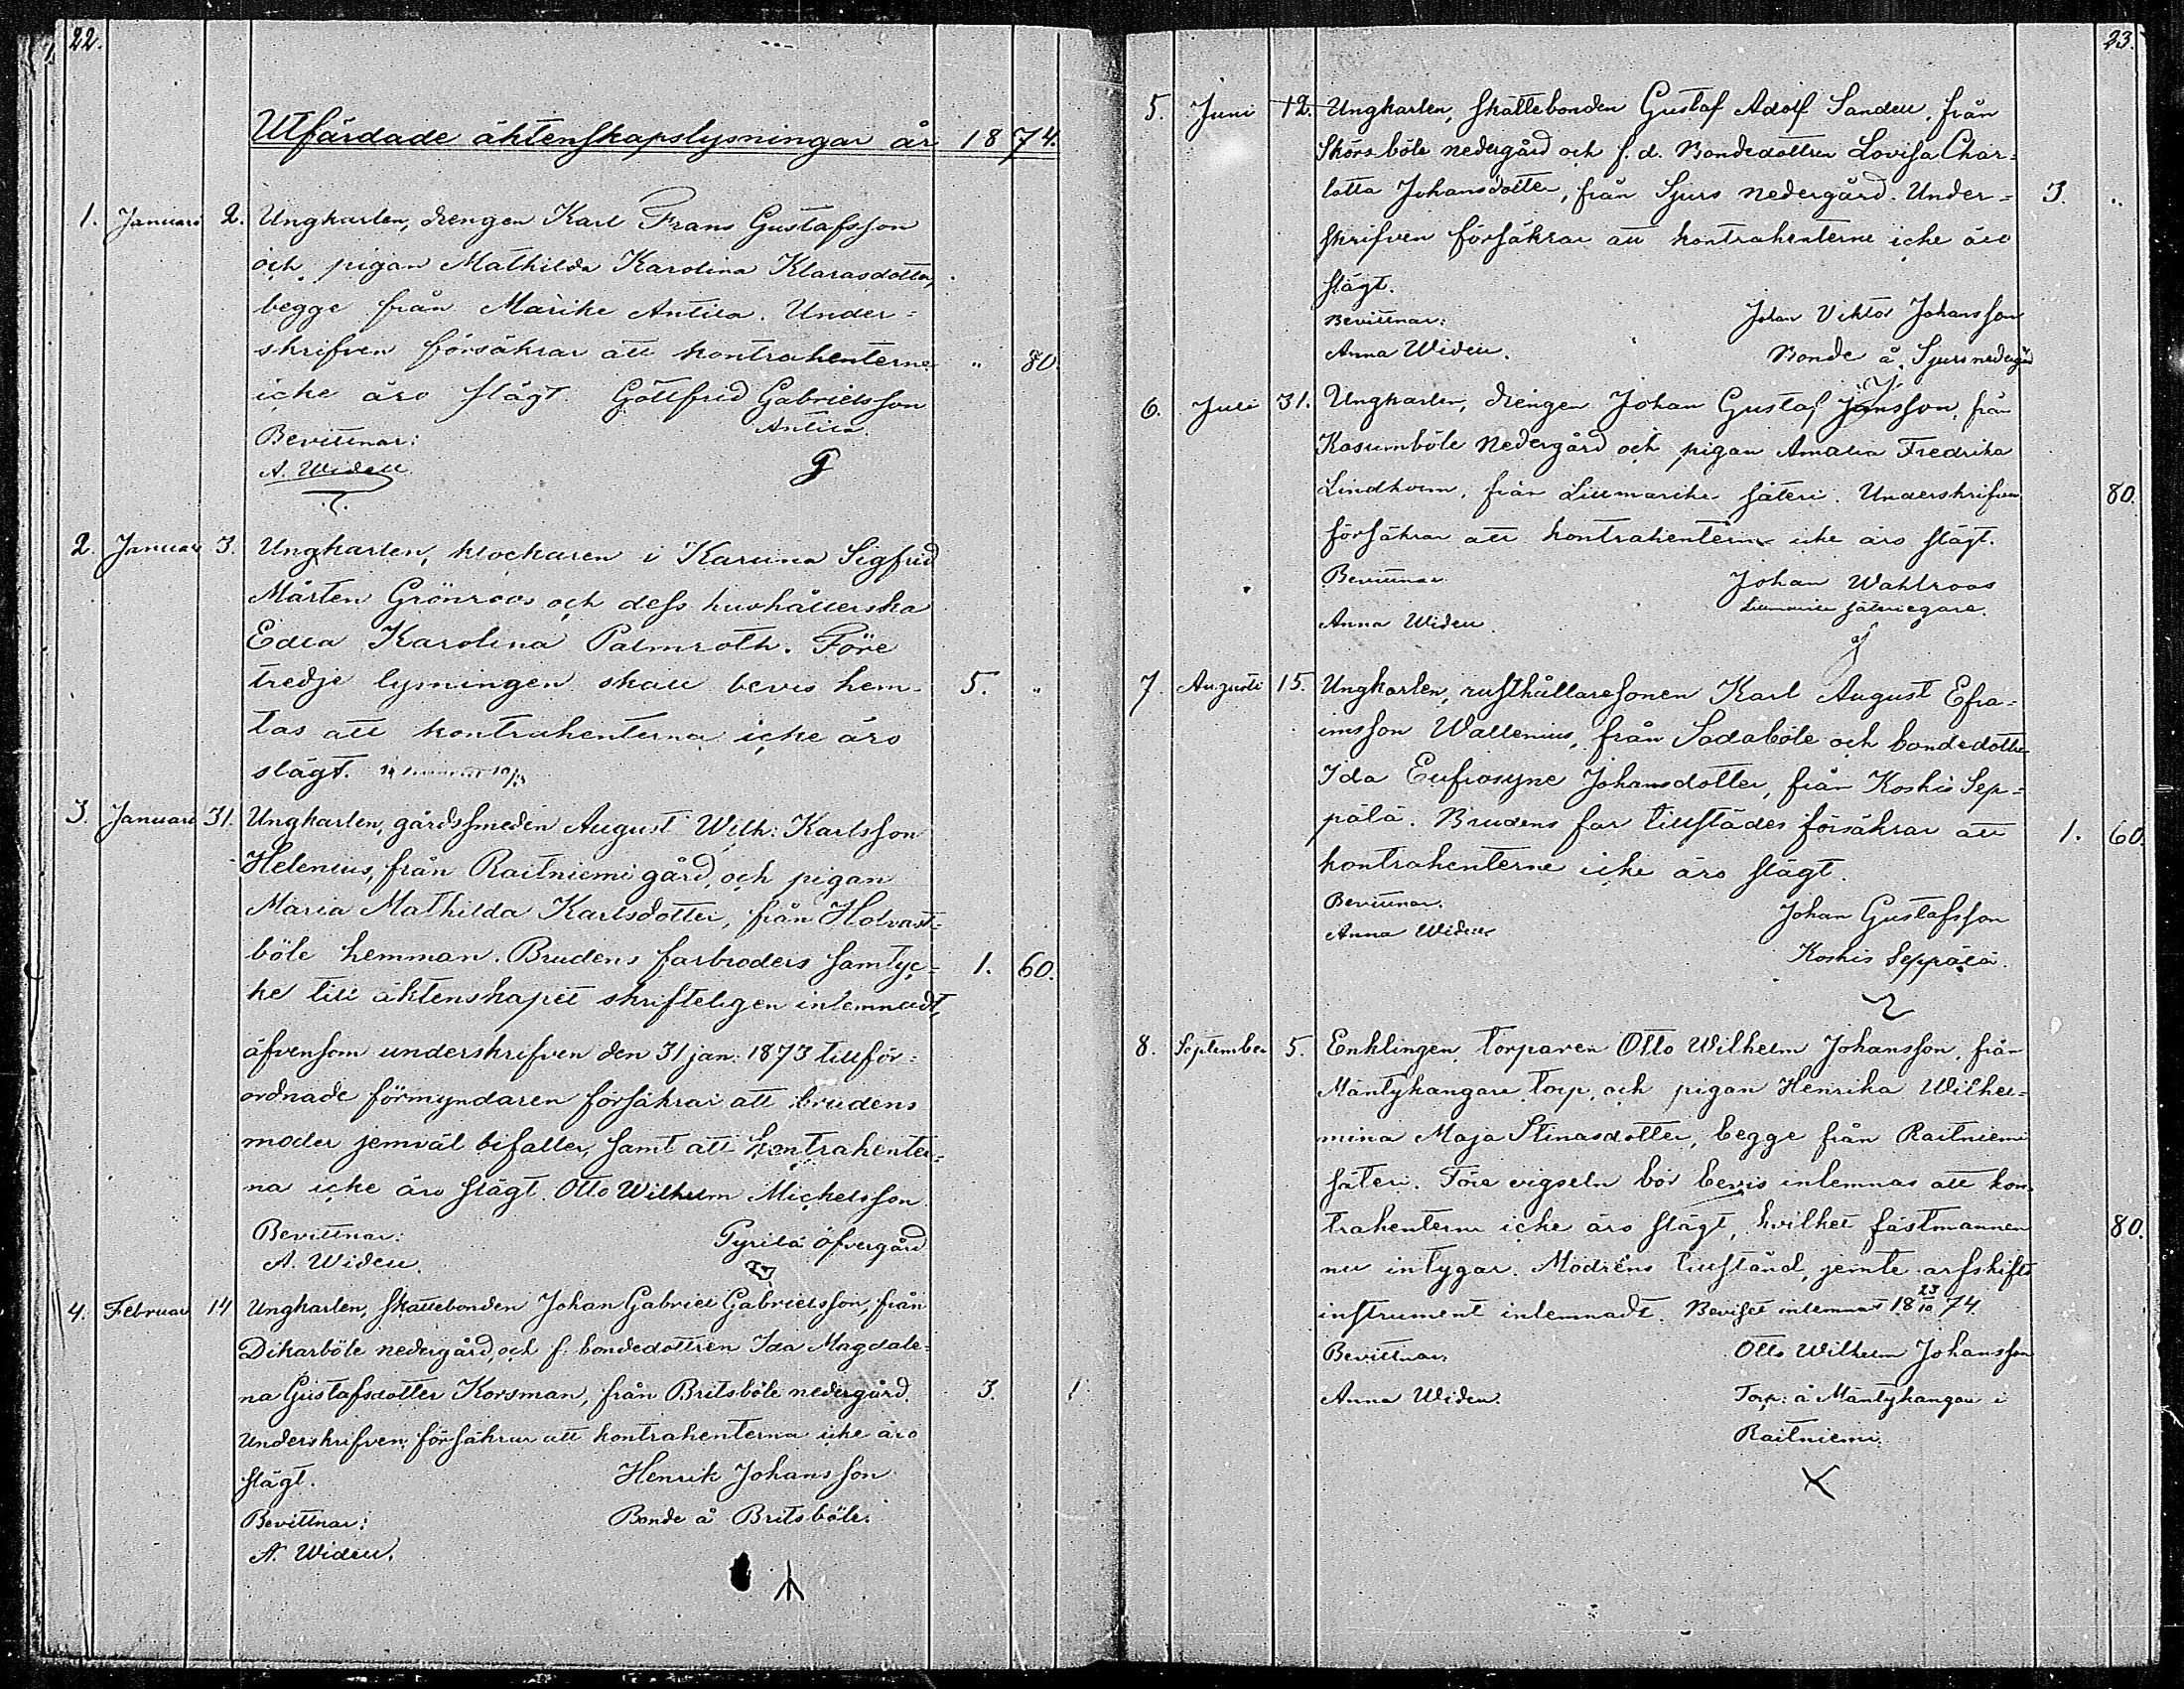 22.
Utfärdade äktenskapslysningar år 1874.
1. Januari 2. Ungkarlen, drengen Karl Frans Gustafsson
och pigan Mathilda Karolina Klarasdotter,
begge från Märike Antila. Under=
skrifven försäkrar att kontrahenterne " 80.
icke äro slägt. Gottfrid Gabrielsson
Bevittnar: Antila.
A. Widell
2. Januari 3. Ungkarlen, klockaren i Karuna Sigfrid
Mårten Grönroos och dess hushållerska
Edla Karolina Palmroth. Före
tredje lysningen skall bevis hem= 5. "
tas att kontrahenterna icke äro
slägt.
3. Januari 31. Ungkarlen, gårdssmeden August Wilh: Karlsson
Helenius, från Raitniemi gård, och pigan
Maria Mathilda Karlsdotter, från Holvast=
böle hemman. Brudens farbroders samtyc= 1. 60.
ke till äktenskapet skrifteligen inlemnadt,
äfvensom underskrifven den 31 jan: 1873 tillför=
ordnade förmyndaren försäkrar att brudens
moder jemväl bifaller, samt att kontrahenter=
na icke äro slägt. Otto Wilhelm Michelsson
Bevittnar: Pyrilä öfvergård
A. Widell.
4. Februari 14 Ungkarlen, skattebonden Johan Gabriel Gabrielsson, från
Dikarböle nedergård, och f. bondedottren Ida Magdale=
na Gustafsdotter Korsman, från Britsböle nedergård. 3.
Underskrifven försäkrar att kontrahenterna icke äro
slägt. Henrik Johansson
Bevittnar: Bonde å Britsböle.
A. Widell.
23.
5. Juni 12. Ungkarlen, skattebonden Gustaf Adolf Sandell, från
Skörsböle nedergård och f. d. Bondedottren Lovisa Char=
lotta Johansdotter, från Sjurs nedergård. Under= 3. "
skrifven försäkrar att kontrahenterne icke äro
slägt.
Bevittnar: Johan Viktor Johansson
Anna Widell. Bonde å Sjurs nedergård
6. Juli 31. Ungkarlen, drengen Johan Gustaf Jansson, från
Kasumböle Nedergård och pigan Amalia Fredrika
Lindholm, från Lillmärike säteri. Underskrifven 80.
försäkrar att kontrahenterne icke äro slägt.
Bevittnar Johan Wahlroos
Lillmärike säteriegare.
Anna Widell
7. Augusti 15. Ungkarlen, rusthållaresonen Karl August Efra=
imsson Wallenius, från Sadaböle och bondedottren
Ida Eufrosyne Johansdotter, från Koskis Sep=
pälä. Brudens far tillstädes försäkrar att 1. 60.
kontrahenterne icke äro slägt.
Bevittnar. Johan Gustafsson
Anna Widell
Koskis Seppälä.
8. September 5. Enklingen, torparen Otto Wilhelm Johansson, från
Mäntykangare torp, och pigan Henrika Wilhel=
mina Maja Stinasdotter, begge från Raitniemi
säteri. Före vigseln bör bevis inlemnas att kon=
trahenterne icke äro slägt, hvilket fästmannen 80.
nu intygar. Modrens tillstånd, jemte arfskifts
instrument inlemnadt. Beviset inlemnat 18 23/10 74.
Bevittnar Otto Wilhelm Johansson
Anna Widell. Torp: å Mäntykangare i
Raitniemi.